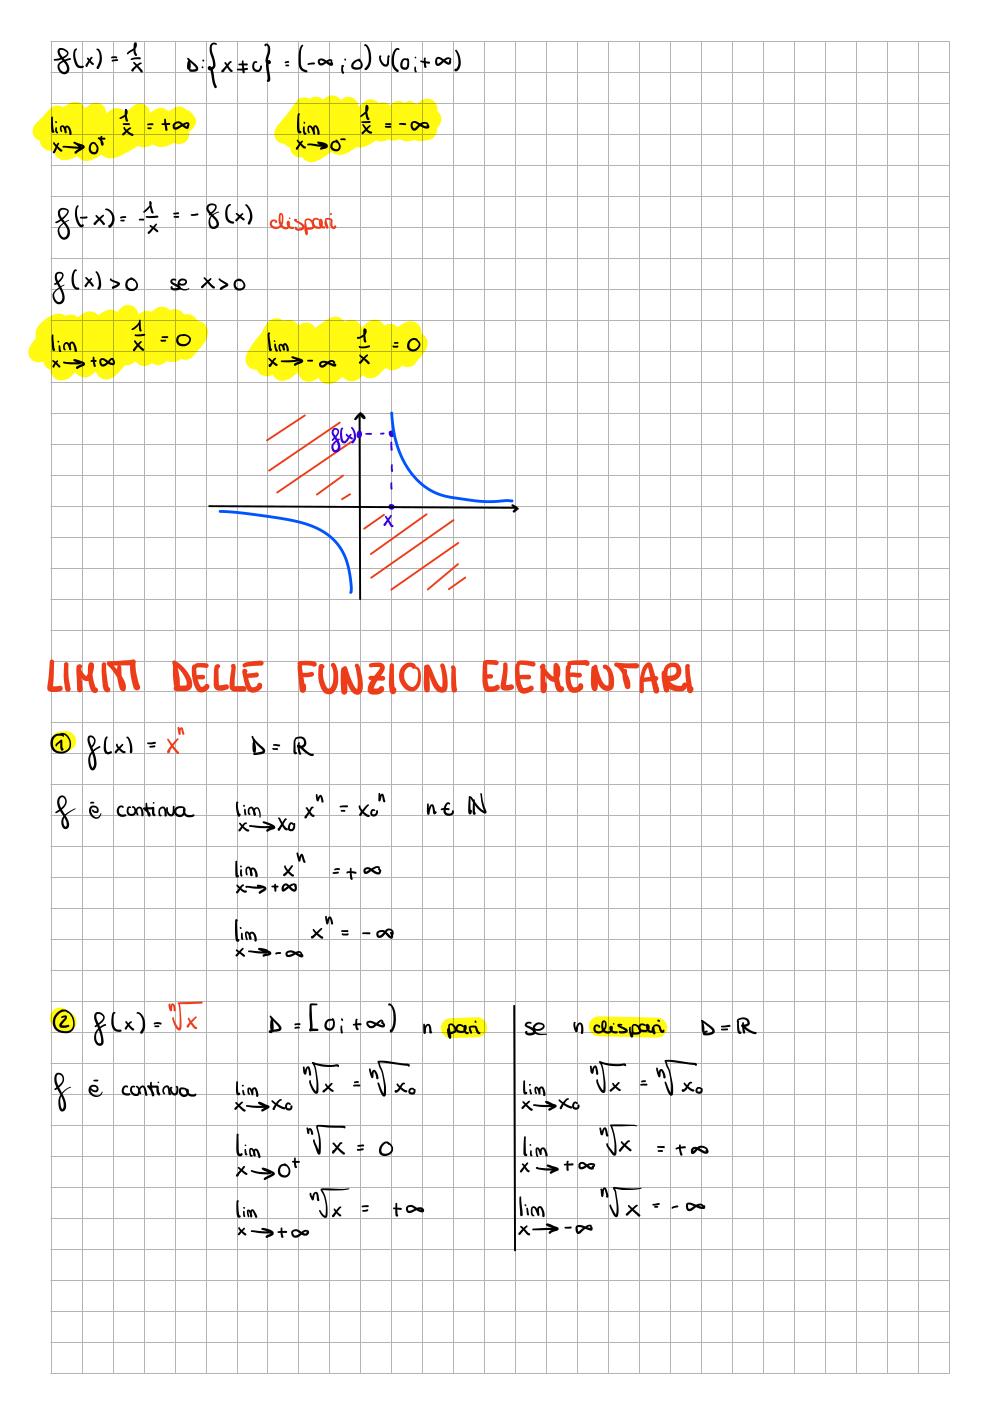 f(x) = 1/x D:{x≠0} = (-∞;0) ∪ (0;+∞)
lim x→0⁺ 1/x = +∞ lim x→0⁻ 1/x = -∞
f(-x) = -1/x = -f(x) dispari
f(x) > 0 se x > 0
lim x→+∞ 1/x = 0 lim x→-∞ 1/x = 0
f(x)
x
LIMITI DELLE FUNZIONI ELEMENTARI
① f(x) = xⁿ D = ℝ
f è continua lim x→x₀ xⁿ = x₀ⁿ n ∈ ℕ
lim x→+∞ xⁿ = +∞
lim x→-∞ xⁿ = -∞
② f(x) = ⁿ√x D = [0;+∞) n pari se n dispari D = ℝ
f è continua lim x→x₀ ⁿ√x = ⁿ√x₀ lim x→x₀ ⁿ√x = ⁿ√x₀
lim x→0⁺ ⁿ√x = 0 lim x→+∞ ⁿ√x = +∞
lim x→+∞ ⁿ√x = +∞ lim x→-∞ ⁿ√x = -∞